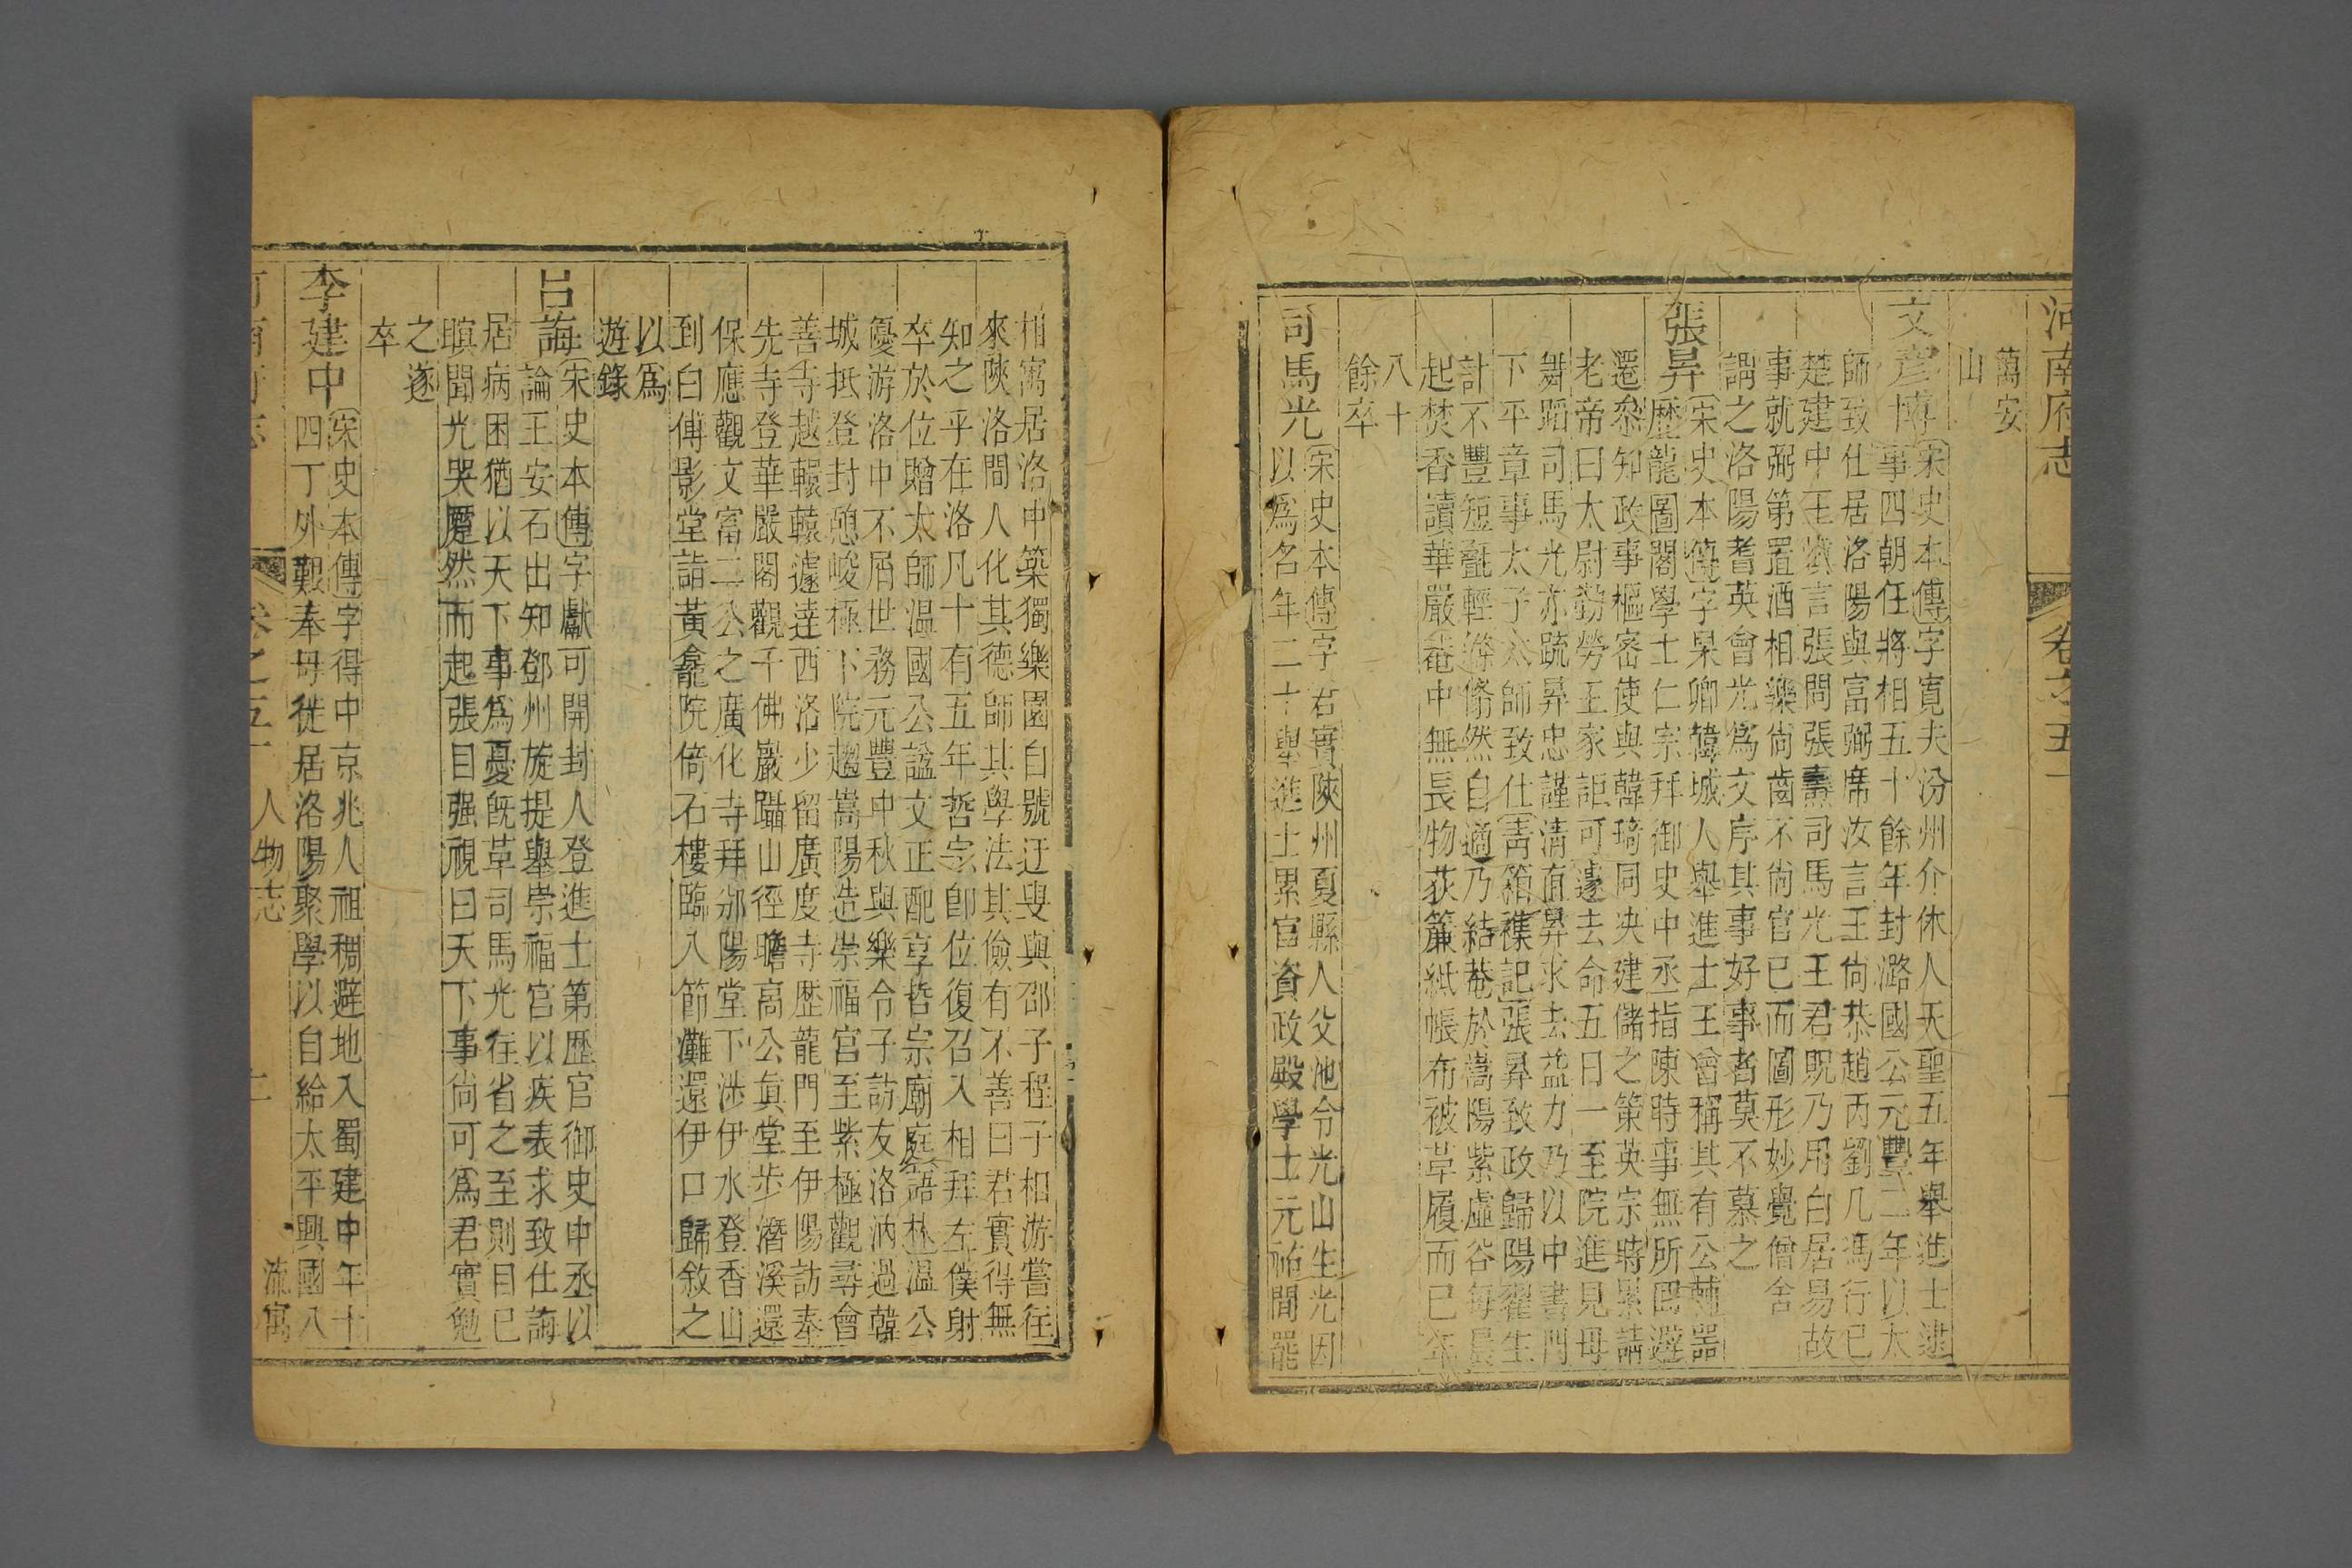 河南府志
卷之五十
萬安
山
文彥博
宋史本傳字寬夫汾州介休人天聖五年舉進士逮
事四朝任將相五十餘年封潞國公元豐二年以太
師致仕居洛陽與富弼席汝言王尙恭趙丙劉几馮行已
楚建中王言張問張壽司馬光王君貺乃用白居易故
事就弼第置酒相樂尙齒不尙官已而圖形妙覺僧舍
謂之洛陽耆英會光爲文序其事好事者莫不慕之
張昇
宋史本傳字杲卿韓城人舉進士王曾稱其有公輔器
歷龍圖閣學士仁宗拜御史中丞指陳時事無所回避
遷叅知政事樞密使與韓琦同決建儲之策英宗時累請
老帝曰太尉勤勞王家詎可遽去命五日一至院進見毋
舞蹈司馬光亦疏昇忠謹清直昇求去益力乃以中書門
下平章事太子太師致仕靑箱襍記張昇致政歸陽翟生
計不豐短氈輕絛翛然自適乃結菴於嵩陽紫虛谷每晨
起焚香讀華嚴菴中無長物荻簾紙帳布被革履而已年
八十
餘卒
司馬光
宋史本傳字君實陝州夏縣人父池令光山生光因
以爲名年二十舉進士累官資政殿學士元祐間罷
相寓居洛中築獨樂園自號迂叟與邵子程子相游嘗往
來陝洛間人化其德師其學法其儉有不善曰君實得無
知之乎在洛凡十有五年哲宗卽位復召入相拜左僕射
卒於位贈太師温國公諡文正配享哲宗廟庭語林温公
優游洛中不屑世務元豐中秋與樂令子訪友洛汭過韓
城抵登封憩峻極下院趨嵩陽造崇福宮至紫極觀尋會
善寺越轘轅遽達西洛少留廣度寺歷龍門至伊陽訪奉
先寺登華嚴閣觀千佛巖躡山徑瞻高公眞堂步潛溪還
保應觀文富二公之廣化寺拜邠陽堂下涉伊水登香山
到白傅影堂詣黃龕院倚石樓臨入節灘還伊口歸敘之
以爲
遊錄
呂誨
宋史本傳字獻可開封人登進士第歷官御史中丞以
論王安石出知鄧州旋提舉崇福宮以疾表求致仕誨
居病困猶以天下事爲憂旣革司馬光往省之至則目已
瞑聞光哭蹷然而起張目强視曰天下事尙可爲君實勉
之遂
卒
李建中
宋史本傳字得中京兆人祖稠避地入蜀建中年十
四丁外艱奉母徙居洛陽聚學以自給太平興國八
河南府志
卷之五十
人物志
流寓